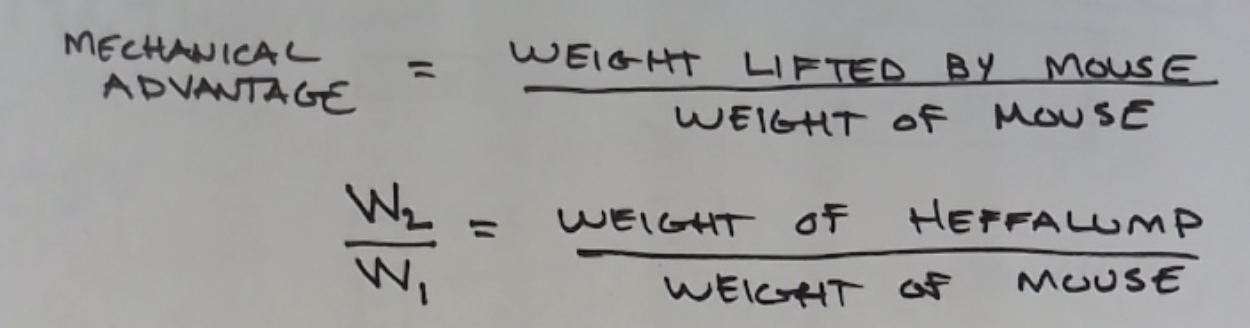 MECHANICAL ADVANTAGE = WEIGHT LIFTED BY MOUSE
WEIGHT OF MOUSE
W2 = WEIGHT OF HEFFALUMP
W1 WEIGHT OF MOUSE